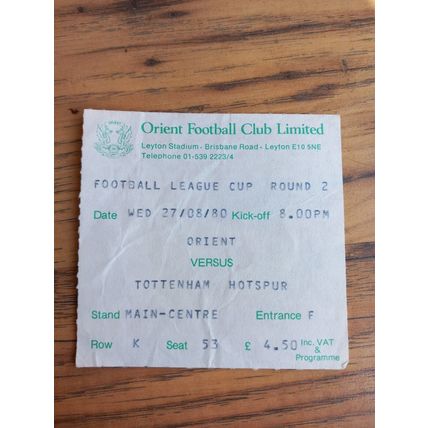 Orient Football Club Limited
Leyton Stadium - Brisbane Road - Leyton E10 5NE
Telephone 01-539 2223/4
FOOTBALL LEAGUE CUP ROUND 2
Date WED 27/08/80 Kick-off 8.00PM
ORIENT
VERSUS
TOTTENHAM HOTSPUR
Stand MAIN-CENTRE Entrance F
Row K Seat 53 £ 4.50 Inc. VAT & Programme